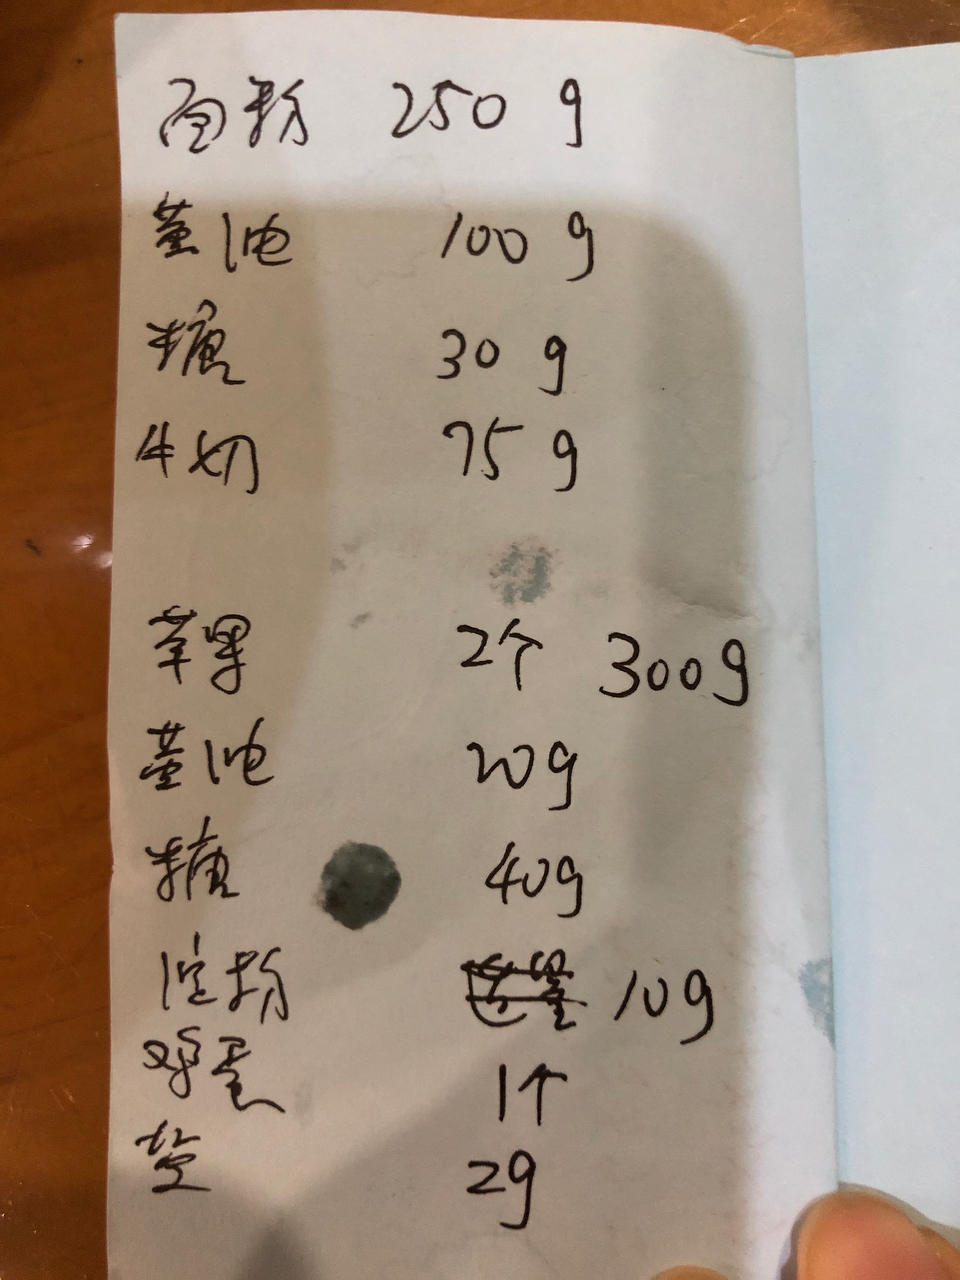 面粉 250g
黄油 100g
糖 30g
牛奶 75g
苹果 2个 300g
黄油 20g
糖 40g
淀粉 适量 10g
鸡蛋 1个
盐 2g